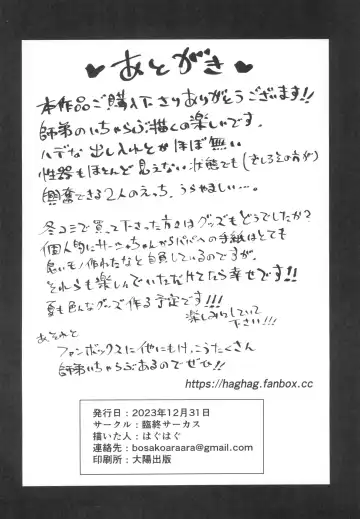 ♥あとがき♥
本作品ご購入下さりありがとうございます!!
師弟のいちゃらぶ描くの楽しいです。
ハデな出し入れとかほぼ無い
性器もほとんど見えない状態でも(むしろその方が)
興奮できる2人のえっち、うらやましい…。
冬コミで買って下さった方々はグッズもどうでしたか?
個人的に ちゃんからパパへの手紙はとても
良いモノ作れたなと自負しているのですが、
それらも楽しんでいただけてたら幸せです!!
夏も色んなグッズ作る予定です!!!
楽しみにしていて
下さい!!!
あとそれと
ファンボックスに他にもけっこうたくさん
師弟いちゃらぶあるのでぜひ!!
https://haghag.fanbox.cc
発行日:2023年12月31日
サークル:臨終サーカス
描いた人:はぐはぐ
連絡先:bosakoaraara@gmail.com
印刷所:大陽出版